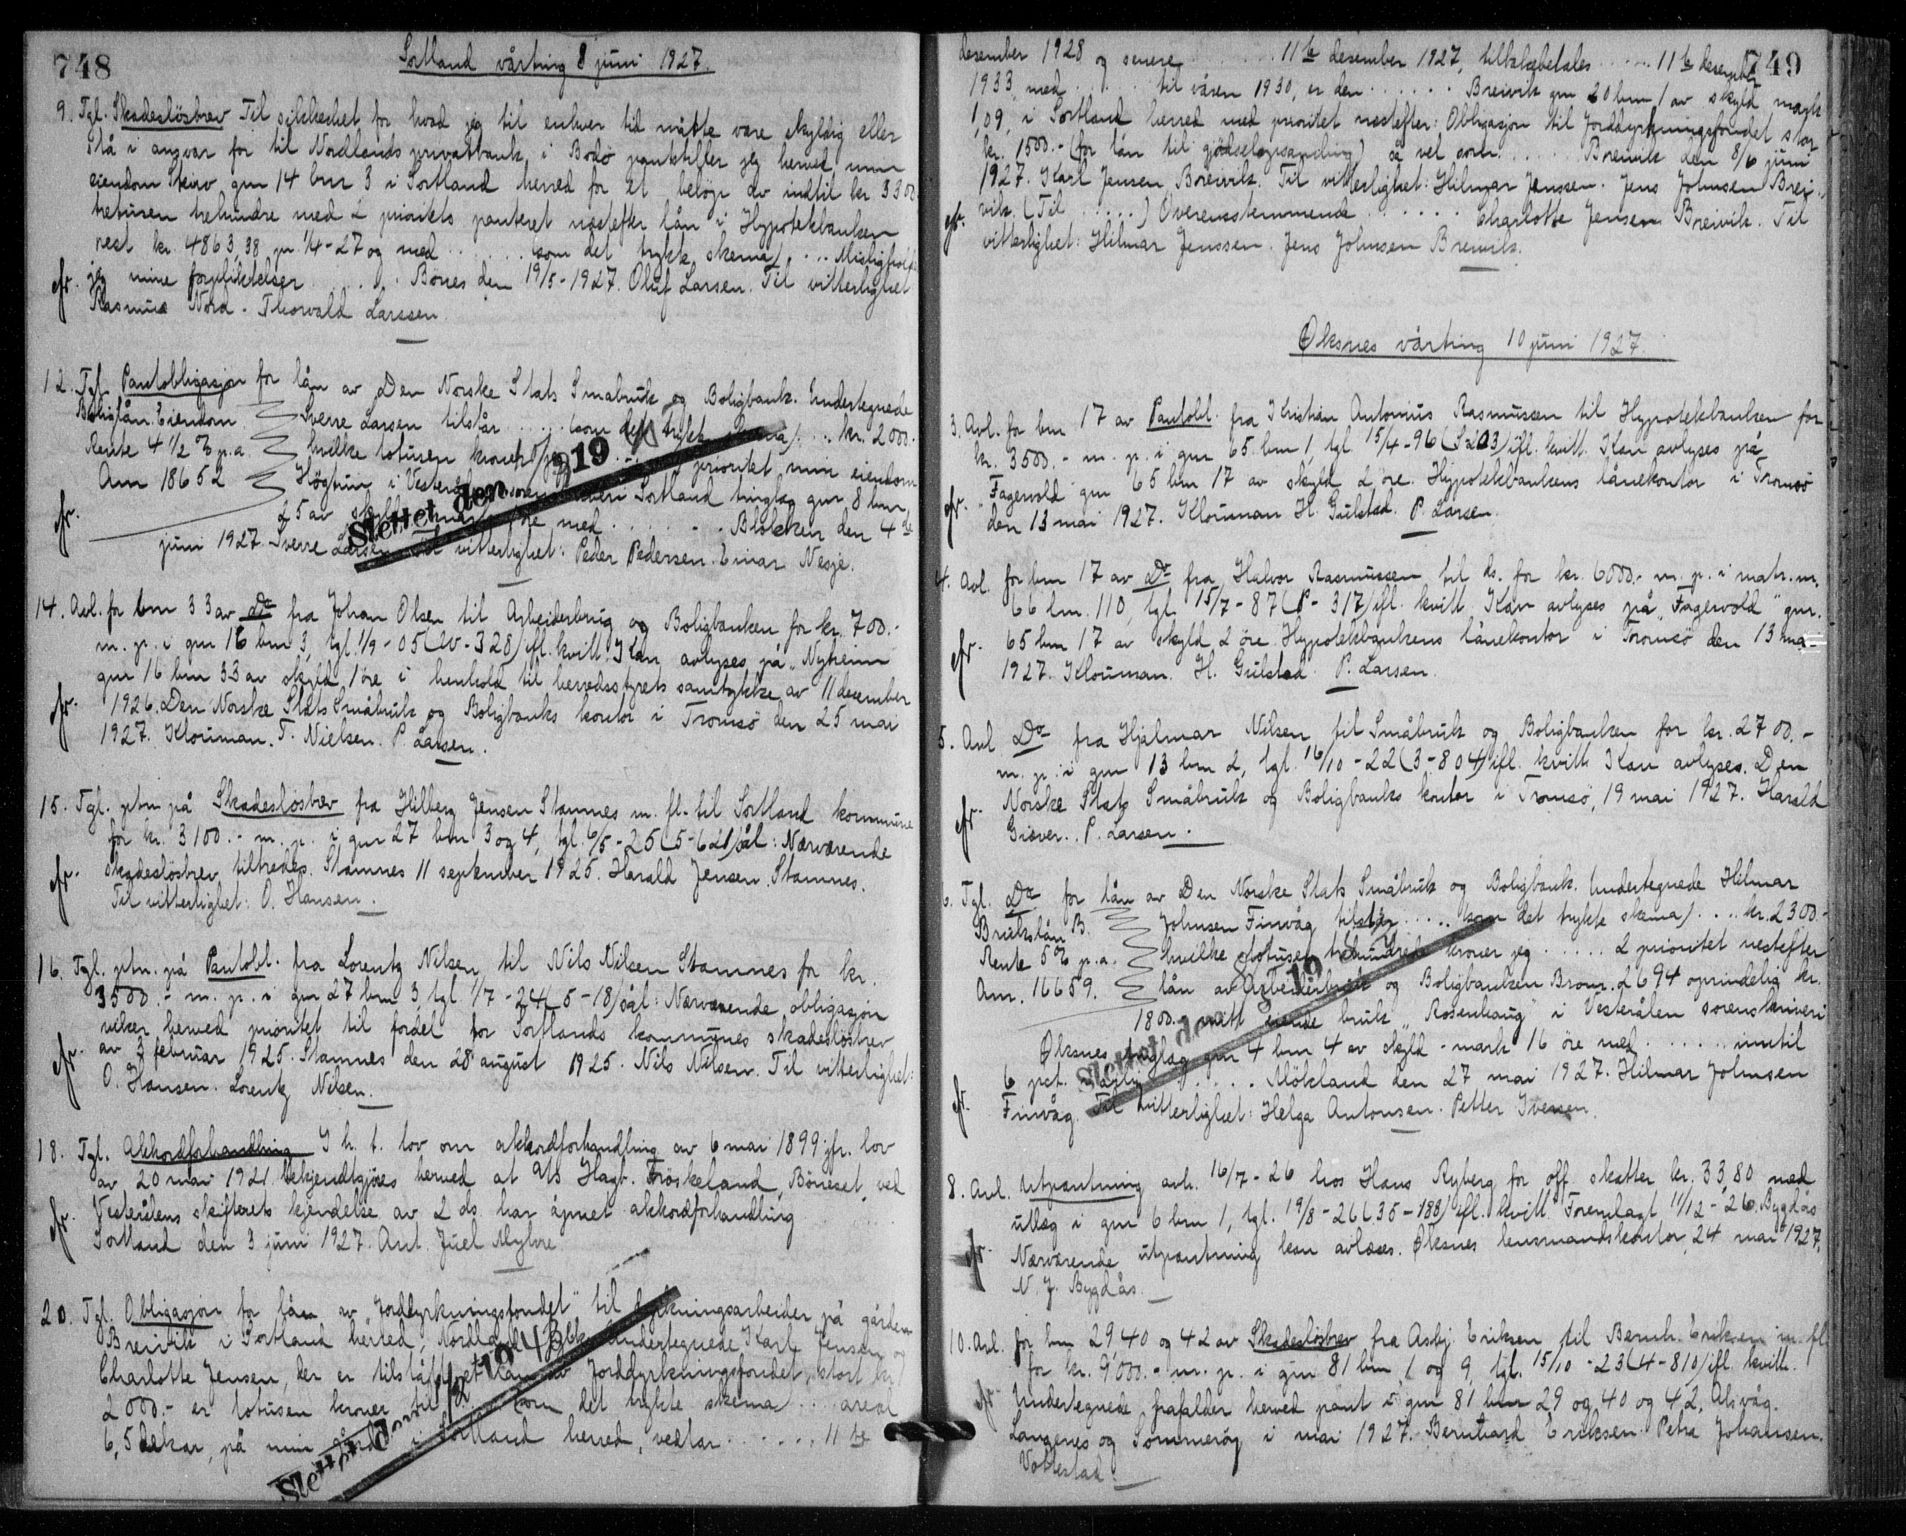 748
Sortland vårting 8 juni 1927.
9. Tgl. Skadesløsbrev Til sikkerhet for hvad jeg til enhver tid måtte være skyldig eller
stå i ansvar for til Nordlands privatbank i Bodø pantstiller jeg herved min
eiendom gnr 14 bnr 3 i Sortland herred for et beløp av indtil kr 3300
tretusen trehundre med 2 prioritets panteret nestefter lån i Hypotekbanken
rest kr. 4863,38 pr 1/4-27 og med ...... (som det trykk. skema) ....
jeg mine forpliktelser ...... Bones den 19/5-1927. Oluf Larsen. Til vitterlighet
Rasmus Nord. Thorvald Larssen.
12. Tgl. Pantobligasjon for lån av Den Norske Stats Småbruk og Boligbank. Undertegnede
Boliglån. Eiendom Sverre Larsen tilstår ...... (som det trykk. skema) .... kr. 2000.
Rente 4 1/2 % p.a. hvilke totusen kroner jeg prioritet min eiendom
Anm 18652 Høgtun i Vesterålen Sortland tinglag gnr 8 bnr
25 av skyld med ...... Blokken den 4de
juni 1927. Sverre Larsen. Til vitterlighet: Peder Pedersen. Einar Nesje.
Slettet den 19
14. Avl. for bnr 33 av Do fra Johan Olsen til Arbeiderbrug og Boligbanken for kr. 700.-
m. p. i gnr 16 bnr 3, tgl. 1/9-05 (W-328) ifl. kvitt. Kan avlyses på "Nyheim"
gnr 16 bnr 33 av skyld 1 øre i henhold til herredsstyrets samtykke av 11 desember
1926. Den Norske Stats Småbruk og Boligbanks kontor i Tromsø den 25 mai
1927. Klouman. T. Nielsen. P Larsen.
15. Tgl. ptn på Skadesløsbrev fra Hilberg Jensen Stamnes m. fl. til Sortland kommune
for kr. 3100.- m. p. i gnr 27 bnr 3 og 4, tgl. 6/5-25 (5-621) sål: Nærværende
skadesløsbrev tiltredes. Stamnes 11 september 1925. Harald Jensen Stamnes.
Til vitterlighet: O. Hansen.
16. Tgl. ptn. på Pantobl. fra Lorentz Nilsen til Nils Nilsen Stamnes for kr.
3500.- m. p. i gnr 27 bnr 3, tgl. 1/7-24 (5-18) sål: Nærværende obligasjon
viker herved prioritet til fordel for Sortlands kommunes skadesløsbrev
av 3 februar 1925. Stamnes den 28 august 1925. Nils Nilsen. Til vitterlighet:
O. Hansen. Lorentz Nilsen.
18. Tgl. Akkordforhandling I h. t. lov om akkordforhandling av 6 mai 1899 jfr. lov
av 20 mai 1921 bekjendtgjøres herved at A/S Hagb. Frøskeland, Bøneset, ved
Vesterålens skifterets kjendelse av 2 ds. har åpnet akkordforhandling
Sortland den 3 juni 1927. Aut. Juel Myhre
20. Tgl. Obligasjon for lån av "Jorddyrkningsfondet" til dyrkningsarbeider på gården
Breivik i Sortland herred, Nordland fylke. Undertegnede Karl Jensen og
Charlotte Jensen, der er tilstått et lån av Jorddyrkningsfondet, stort kr.
2000.- er totusen kroner til (som det trykte skema) ... areal
6,5 dekar, på min gård i Sortland herred, vedtar ...... 11te
Slettet den 1/2 1943
749
desember 1928 og senere ...... 11te desember 1927, tilbakebetales ..... 11te desember
1933, med ..... til våren 1930, er den ...... Breivik gnr 20 bnr 1 av skyld mark
1,09, i Sortland herred med prioritet nestefter: Obligasjon til Jorddyrkningsfondet stor
kr. 1500.- (for lån til gødselopsamling) så vel som ..... Breivik den 8/6 juni
1927. Karl Jensen Breivik. Til vitterlighet: Hilmar Jenssen. Jens Johnsen Brei-
vik. (Til .....) Overensstemmende ...... Charlotte Jensen Breivik. Til
vitterlighet: Hilmar Jenssen. Jens Johnsen Breivik.
Øksnes vårting 10 juni 1927.
3. Avl. for bnr 17 av Pantobl. fra Kristian Antonius Rasmussen til Hypotekbanken for
kr. 3500.- m. p. i gnr 65 bnr 1, tgl. 15/4-96 (S-203) ifl. kvitt. Kan avlyses på
"Fagervold" gnr 65 bnr 17 av skyld 2 øre. Hypotekbankens lånekontor i Tromsø
den 13 mai 1927. Klouman H. Gulstad. P Larsen.
4. Avl. for bnr 17 av Do fra Halvor Rasmussen til ds. for kr. 6000.- m. p. i matr. nr.
66 lnr. 110 tgl. 15/7-87 (P-317) ifl. kvitt. Kan avlyses på "Fagervold" gnr.
65 bnr 17 av skyld 2 øre. Hypotekbankens lånekontor i Tromsø den 13 mai
1927. Klouman. H. Gulstad. P. Larsen.
5. Avl Do fra Hjalmar Nilsen til Småbruk og Boligbanken for kr. 2700.-
m. p. i gnr 13 bnr 2, tgl. 16/10-22 (3-804) ifl. kvitt. Kan avlyses. Den
Norske Stats Småbruk og Boligbanks kontor i Tromsø, 19 mai 1927. Harald
Giæver. P. Larsen.
6. Tgl. Do for lån av Den Norske Stats Småbruk og Boligbank. Undertegnede Hilmar
Brukslån B. Johnsen Finvåg tilstår .... (som det trykte skema) .... kr. 2300.-
Rente 5% p.a. hvilke totusen trehundrede kroner jeg ..... 2 prioritet nestefter
Anr. 16659. lån av Arbeiderbruk og Boligbanken Bronr. 2694 oprindelig kr.
1800.- mitt eiende bruk "Rosenhaug" i Vesterålen sorenskriveri
Øksnes tinglag gnr 4 bnr 4 av skyld - mark 16 øre med ...... inntil
6 pct. ..... Mökland den 27 mai 1927. Hilmar Johnsen
Finvåg. Til vitterlighet: Helga Antonsen. Petter Iversen.
Slettet den 19
8. Avl. Utpantning avh. 16/7-26 hos Hans Ryberg for off. skatter kr. 33,80 med
utlæg i gnr 6 bnr 1, tgl. 19/8-26 (35-188) ifl. kvitt. Foreslagt 11/12-26. Bygdås
Nærværende utpantning kan avlæses. Øksnes lensmandskontor, 24 mai 1927.
N. J. Bygdås.
10. Avl. for bnr 29, 40 og 42 av Skadesløsbrev fra Asbj. Eriksen til Bernh. Eriksen m. fl
for kr. 9000.- m. p. i gnr 81 bnr 1 og 9, tgl. 15/10-23 (4-810) ifl. kvitt.
Undertegnede frafalder herved pant i gnr 81 bnr 29 og 40 og 42, Alsvåg.
Langenes og Sommerøy i mai 1927. Bernhard Eriksen. Petra Johansen.
Vottestad.